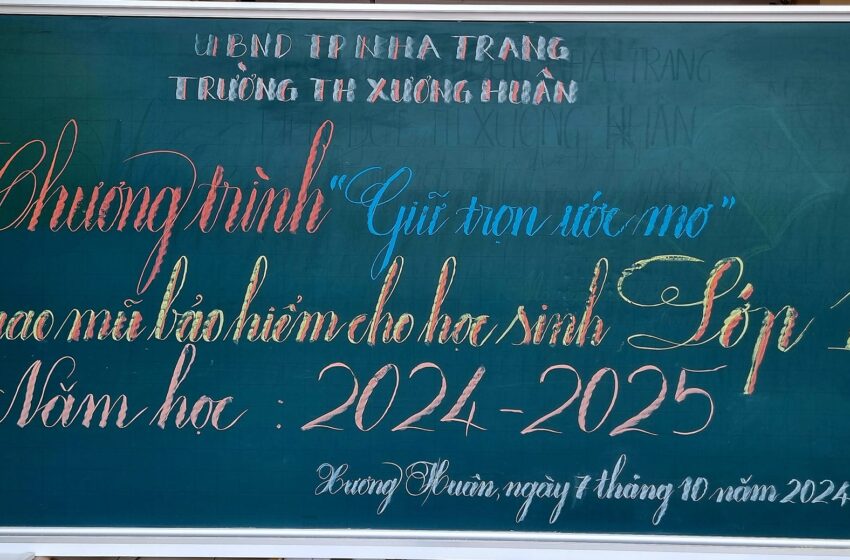 UBND TP NHA TRANG
TRƯỜNG TH XƯƠNG HUÂN
Chương trình "Giữ trọn ước mơ"
mũ bảo hiểm cho học sinh Lớp 1
Năm học : 2024-2025
Xương Huân, ngày 7 tháng 10 năm 2024